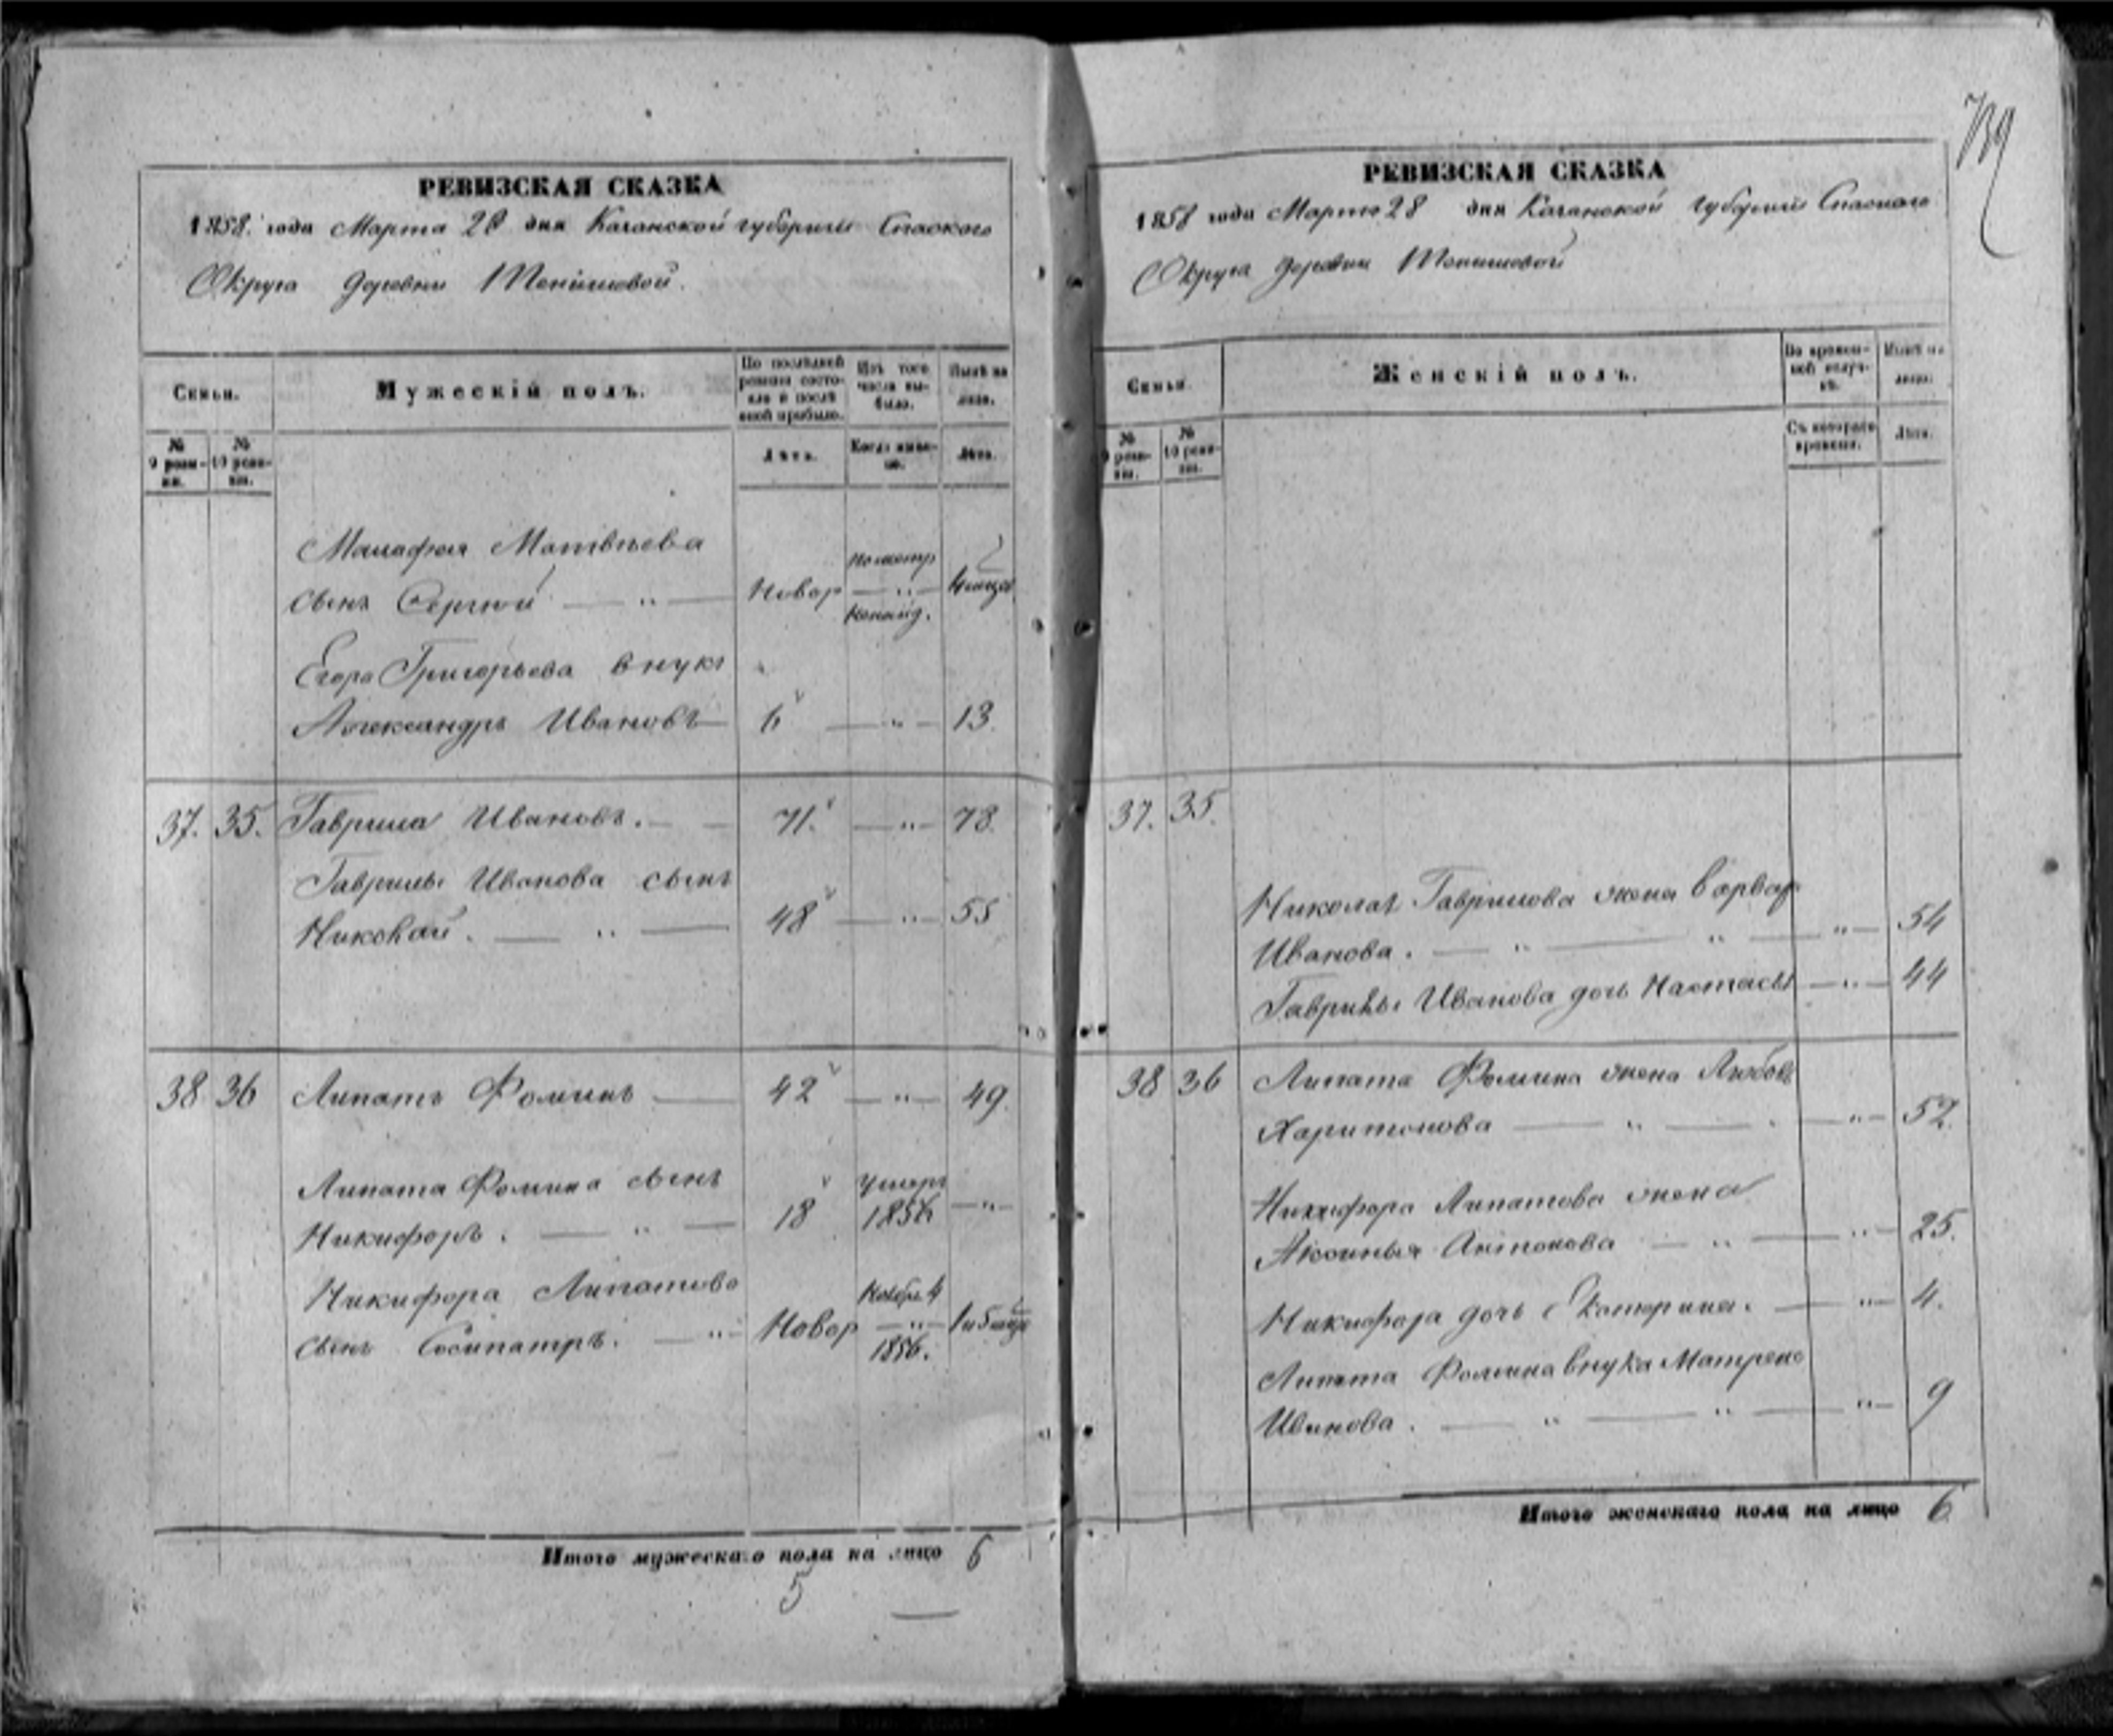 739
РЕВИЗСКАЯ СКАЗКА
1858 года Марта 28 дня Казанской губернии Спаского
Округа деревни
Семьи.
Мужескій полъ.
По послѣдней ревизіи состояло и послѣ оной прибыло.
Изъ того числа выбыло.
Нынѣ на лицо.
№ 9 ревизіи.
№ 10 ревизіи.
Лѣта.
Когда именно.
Лѣта.
Малафея Матвѣева
сынъ Сергѣй — " — Новор — " —
Егора Григорьева внукъ
Александръ Ивановъ — 6 — " — 13.
37. 35. Гаврила Ивановъ. — — 71. — " — 78.
Гаврилы Иванова сынъ
Николай. — " — 48 — " — 55
38 36 Липатъ Фоминъ — 42 — " — 49.
Липата Фомина сынъ умеръ
Никифоръ. — " — 18 1856 — " —
Никифора Липатова
сынъ Сосипатръ. — " — Новор — " —
1856.
Итого мужескаго пола на лицо 6
5
РЕВИЗСКАЯ СКАЗКА
1858 года Марта 28 дня Казанской губерніи Спаского
Округа деревни
Семьи.
Женскій полъ.
Во временной отлучкѣ.
Нынѣ на лицо.
№ 9 ревизіи.
№ 10 ревизіи.
Съ котораго времени.
Лѣта.
37. 35.
Николая Гаврилова жена Варвар
Иванова. — " — " — " — 54
Гаврилы Иванова дочь Настасья — " — 44
38 36 Липата Фомина жена Любовь
Харитонова — " — — " — 52.
Никифора Липатова жена
Аксинья Антонова — " — " — 25.
Никифора дочь Екатерина. — " — 4.
Липата Фомина внука Матрена
Иванова. — " — " — " — 9
Итого женскаго пола на лицо 6